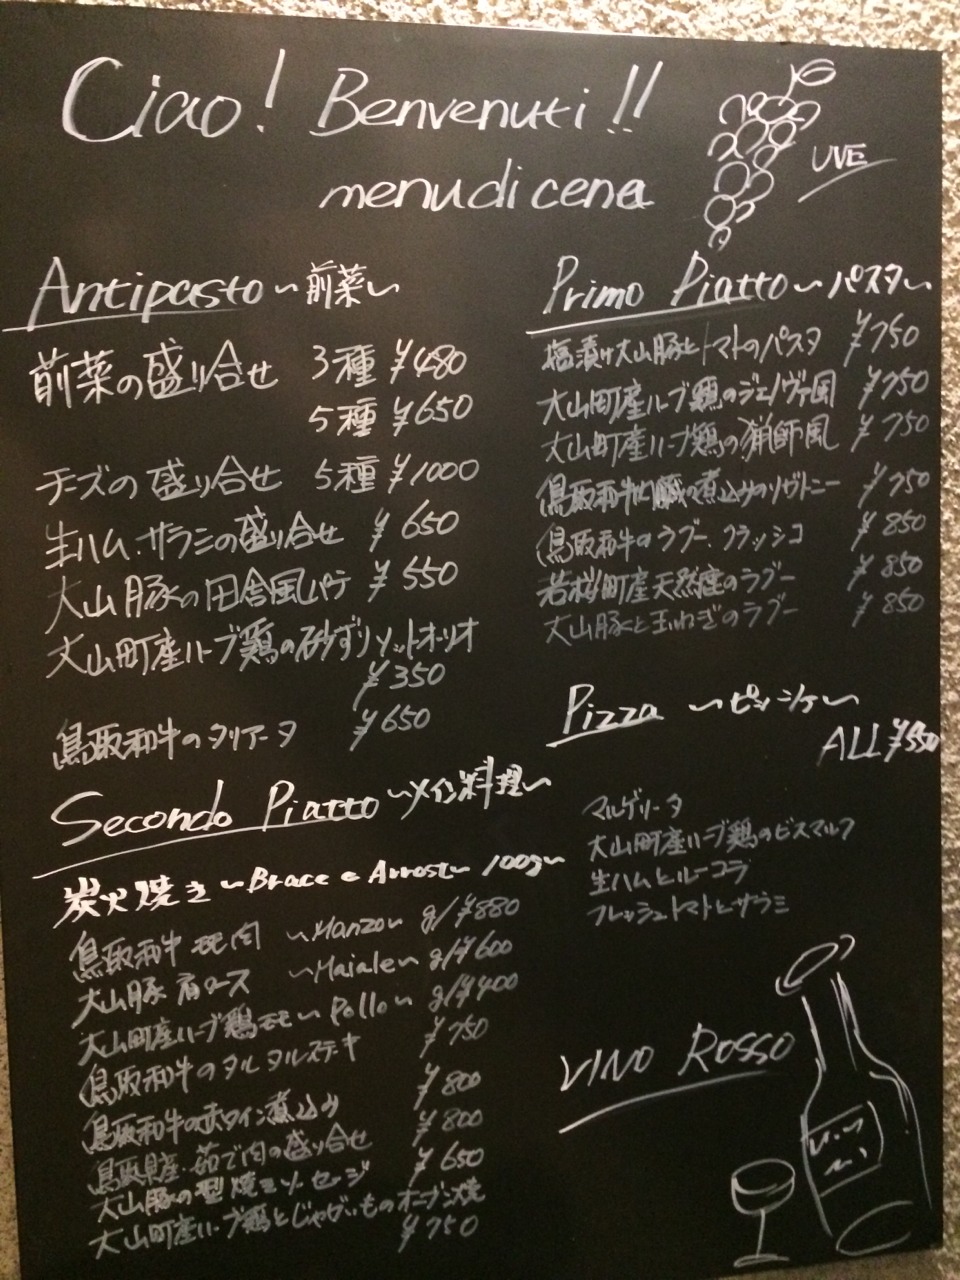 Ciao! Benvenuti!!
menu di cena
UVE
Antipasto ~前菜~
前菜の盛り合せ 3種 ¥480
5種 ¥650
チーズの盛り合せ 5種 ¥1000
生ハム、サラミの盛り合せ ¥650
大山豚の田舎風パテ ¥550
大山町産ハーブ鶏の砂ずりソットオーリオ
¥350
鳥取和牛のタリアータ ¥650
Secondo Piatto ~メイン料理~
炭火焼き ~Brace e Arrosto~ 100g~
鳥取和牛 モモ肉 ~Manzo~ g/¥880
大山豚 肩ロース ~Maiale~ g/¥600
大山町産ハーブ鶏モモ~Pollo~ g/¥400
鳥取和牛のタルタルステーキ ¥750
鳥取和牛の赤ワイン煮込み ¥800
鳥取県産 茹で肉の盛り合せ ¥800
大山豚の型焼きソーセージ ¥650
大山町産ハーブ鶏とじゃがいものオーブン焼
¥750
Primo Piatto ~パスタ~
塩漬け大山豚とトマトのパスタ ¥750
大山町産ハーブ鶏のジェノヴァ風 ¥750
大山町産ハーブ鶏の猟師風 ¥750
鳥取和牛内臓の煮込みのリガトニー ¥750
鳥取和牛のラグー、フラッシコ ¥850
若桜町産天然鹿のラグー ¥850
大山豚と玉ねぎのラグー ¥850
Pizza ~ピッツァ~
ALL ¥550
マルゲリータ
大山町産ハーブ鶏のビスマルク
生ハムとルーコラ
フレッシュトマトとサラミ
VINO ROSSO